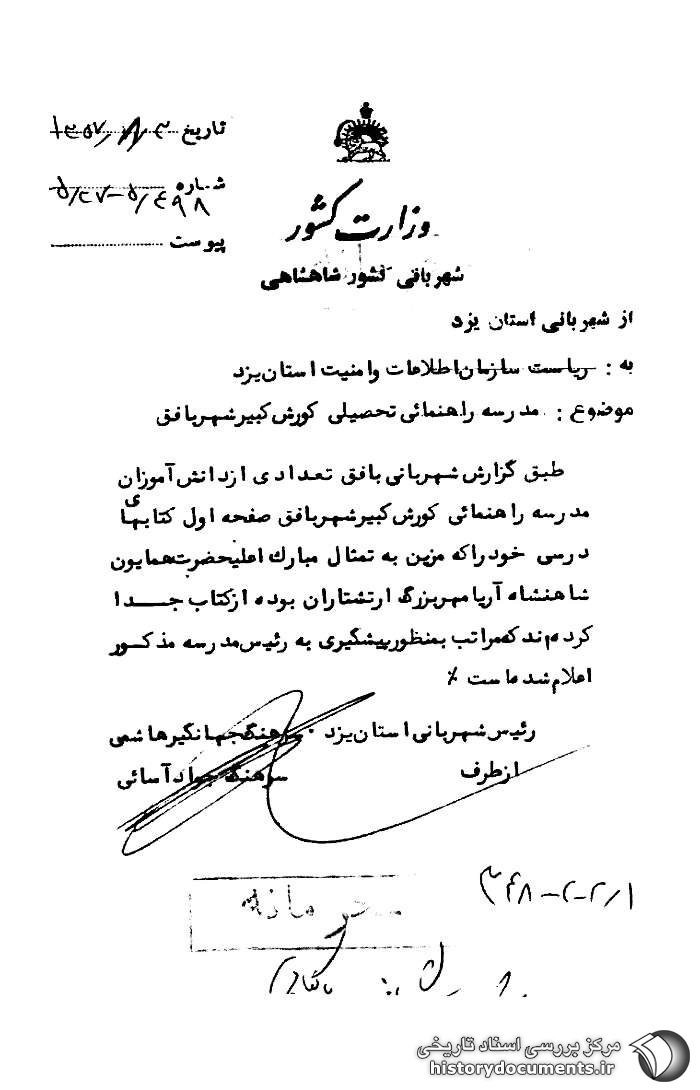 تاریخ ۱۳۵۷/۸/۳
شماره ۵/۲۷-۵/۴۹۸
پیوست
وزارت کشور
شهربانی کشور شاهنشاهی
از شهربانی استان یزد
به : ریاست سازمان اطلاعات وامنیت استان یزد
موضوع : مدرسه راهنمائی تحصیلی کورش کبیر شهر بافق
طبق گزارش شهربانی بافق تعدادی ازدانش آموزان
مدرسه راهنمائی کورش کبیر شهر بافق صفحه اول کتابهای
درسی خود راکه مزین به تمثال مبارك اعلیحضرت همایون
شاهنشاه آریامهر بزرگ ارتشتاران بوده از کتاب جدا
کرده‌اند که مراتب بمنظور پیشگیری به رئیس مدرسه مذکور
اعلام شده است ٪
رئیس شهربانی استان یزد . سرهنگ جهانگیر هاشمی
از طرف سرهنگ جواد آسائی
محرمانه
مرکز بررسی اسناد تاریخی
historydocuments.ir